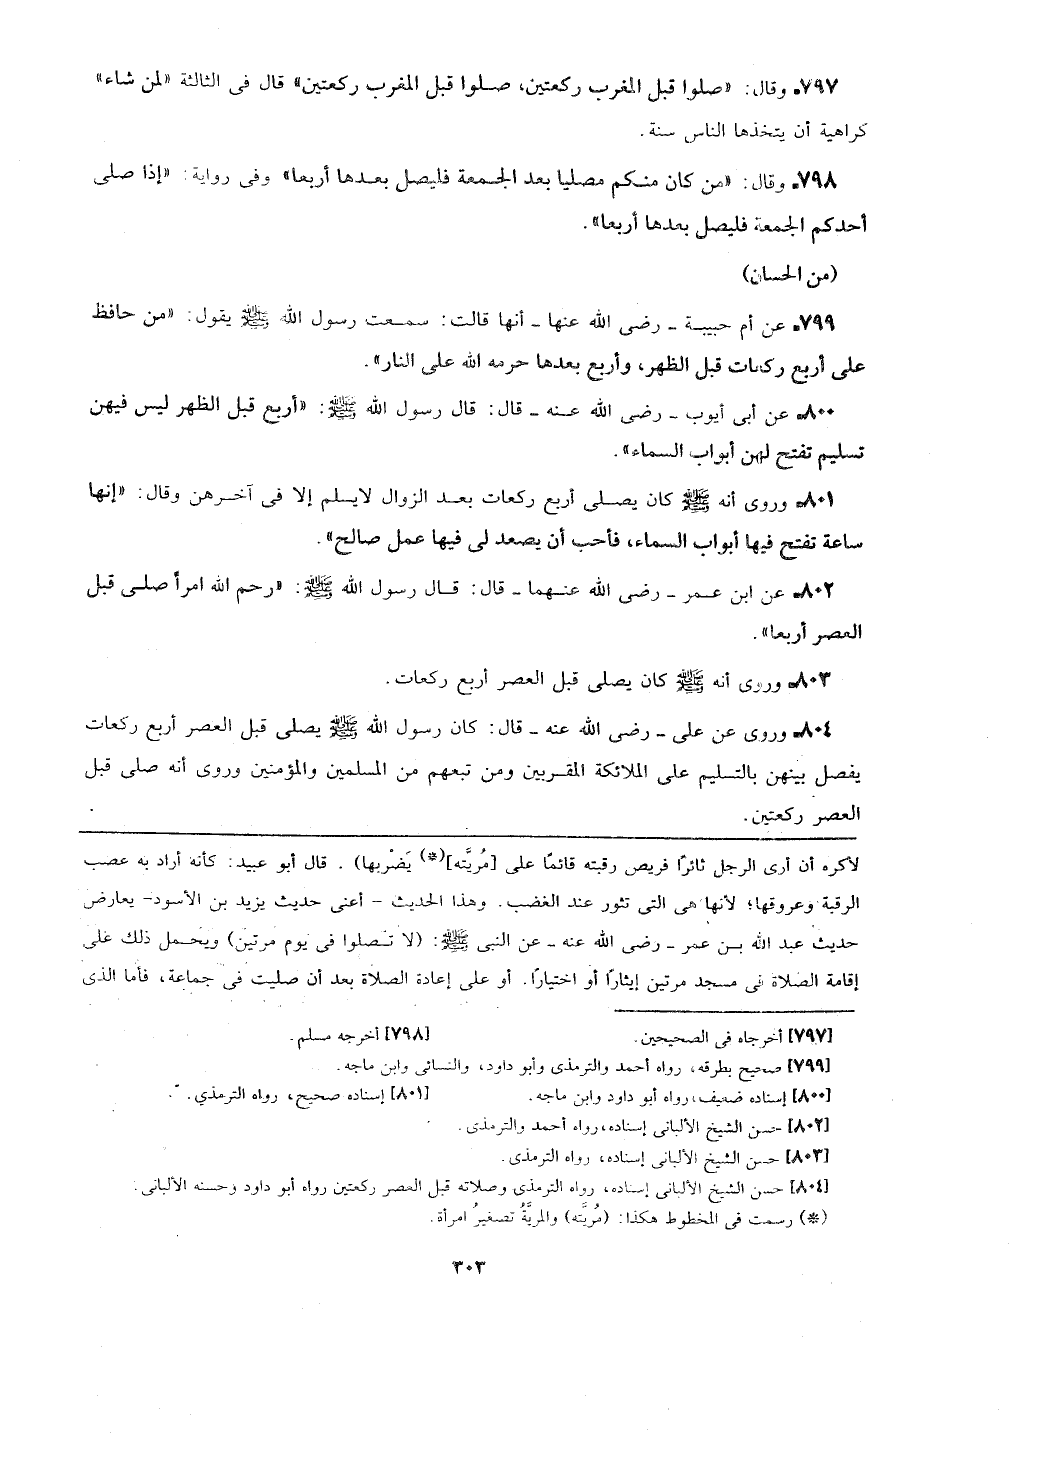 ٧٩٧ـ وقال: «صلوا قبل المغرب ركعتين، صلوا قبل المغرب ركعتين» قال فى الثالثة «لمن شاء»
كراهية أن يتخذها الناس سنة.
٧٩٨ـ وقال: «من كان منكم مصليا بعد الجمعة فليصل بعدها أربعا» وفى رواية: «إذا صلى
أحدكم الجمعة فليصل بعدها أربعا».
(من الحسان)
٧٩٩ـ عن أم حبيبة ـ رضى الله عنها ـ أنها قالت: سمعت رسول الله ﷺ يقول: «من حافظ
على أربع ركعات قبل الظهر، وأربع بعدها حرمه الله على النار».
٨٠٠ـ عن أبى أيوب ـ رضى الله عنه ـ قال: قال رسول الله ﷺ: «أربع قبل الظهر ليس فيهن
تسليم تفتح لهن أبواب السماء».
٨٠١ـ وروى أنه ﷺ كان يصلى أربع ركعات بعد الزوال لايسلم إلا فى آخرهن وقال: «إنها
ساعة تفتح فيها أبواب السماء، فأحب أن يصعد لى فيها عمل صالح».
٨٠٢ـ عن ابن عمر ـ رضى الله عنهما ـ قال: قال رسول الله ﷺ: «رحم الله امرأ صلى قبل
العصر أربعا».
٨٠٣ـ وروى أنه ﷺ كان يصلى قبل العصر أربع ركعات.
٨٠٤ـ وروى عن على ـ رضى الله عنه ـ قال: كان رسول الله ﷺ يصلى قبل العصر أربع ركعات
يفصل بينهن بالتسليم على الملائكة المقربين ومن تبعهم من المسلمين والمؤمنين وروى أنه صلى قبل
العصر ركعتين.
لأكره أن أرى الرجل ثائرًا فريص رقبته قائمًا على [مُريَّته](*) يَضْربها) . قال أبو عبيد: كأنه أراد به عصب
الرقبة وعروقها؛ لأنها هى التى تثور عند الغضب. وهذا الحديث – أعنى حديث يزيد بن الأسود– يعارض
حديث عبد الله بن عمر ـ رضى الله عنه ـ عن النبى ﷺ: (لا تصلوا فى يوم مرتين) ويحمل ذلك على
إقامة الصلاة فى مسجد مرتين إيثارًا أو اختيارًا. أو على إعادة الصلاة بعد أن صليت فى جماعة، فأما الذى
[٧٩٧] أخرجاه فى الصحيحين. [٧٩٨] أخرجه مسلم.
[٧٩٩] صحيح بطرقه، رواه أحمد والترمذى وأبو داود، والنسائى وابن ماجه.
[٨٠٠] إسناده ضعيف، رواه أبو داود وابن ماجه. [٨٠١] إسناده صحيح، رواه الترمذي.
[٨٠٢] حسن الشيخ الألبانى إسناده، رواه أحمد والترمذى.
[٨٠٣] حسن الشيخ الألبانى إسناده، رواه الترمذى.
[٨٠٤] حسن الشيخ الألبانى إسناده، رواه الترمذى وصلاته قبل العصر ركعتين رواه أبو داود وحسنه الألبانى.
(*) رسمت فى المخطوط هكذا: (مُريَّته) والمريَّةُ تصغيرُ امرأة.
٣٠٣